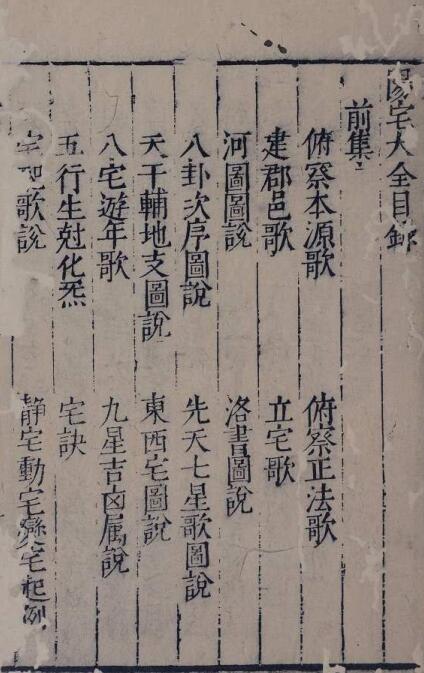 陽宅大全目錄
前集
俯察本源歌 俯察正法歌
建郡邑歌 立宅歌
河圖圖說 洛書圖說
八卦次序圖說 先天七星歌圖說
天干輔地支圖說 東西宅圖說
八宅遊年歌 九星吉凶属說
五行生尅化炁 宅訣
宅 歌說 静宅動宅變宅起例